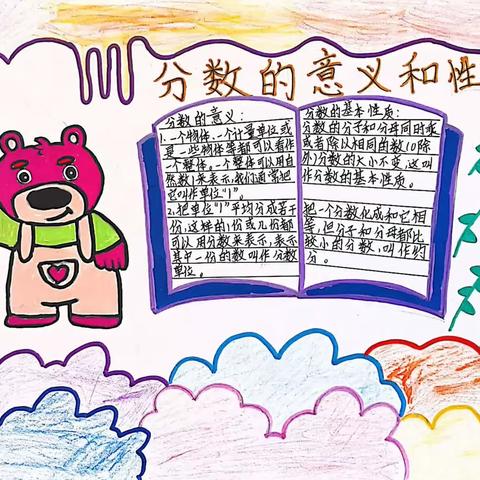 分数的意义和性
分数的意义:
1.一个物体、一个计量单位或
是一些物体等都可以看作
一个整体,一个整体可以用自
然数1来表示,我们通常把
它叫作单位“1”。
2.把单位“1”平均分成若干
份,这样的1份或几份都
可以用分数来表示,表示
其中一份的数叫作分数
单位。
分数的基本性质:
分数的分子和分母同时乘
或者除以相同的数(0除
外)分数的大小不变,这叫
作分数的基本性质。
把一个分数化成和它相
等,但分子和分母都比
较小的分数,叫作约
分。